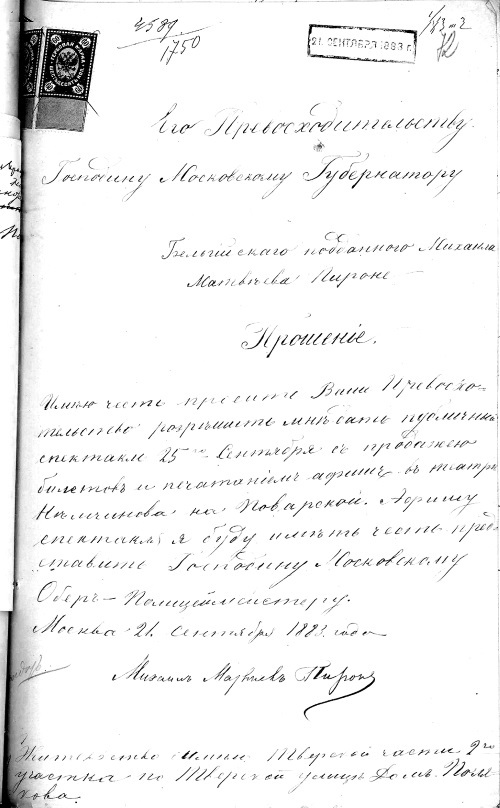 4589
1750
21. СЕНТЯБРЯ 1883 г.
72
Его Превосходительству
Господину Московскому Губернатору
Бельгійскаго подданнаго Михаила
Матвѣева Пироне
Прошеніе.
Имѣю честь просить Ваше Превосхо-
тельство розрѣшить мнѣ дать публичный
спектакль 25го Сентября съ продажею
билетовъ и печатаніемъ афишъ въ театрѣ
Нѣмчинова на Поварской. Афишу
спектакля я буду имѣть честь пред-
ставить Господину Московскому
Оберъ-Полицеймейстеру.
Москва 21. Сентября 1883. года
Михаилъ Матвѣевъ Пироне
Жительство имѣю Тверской части 2го
участка по Тверской улицѣ домъ Поля-
кова.